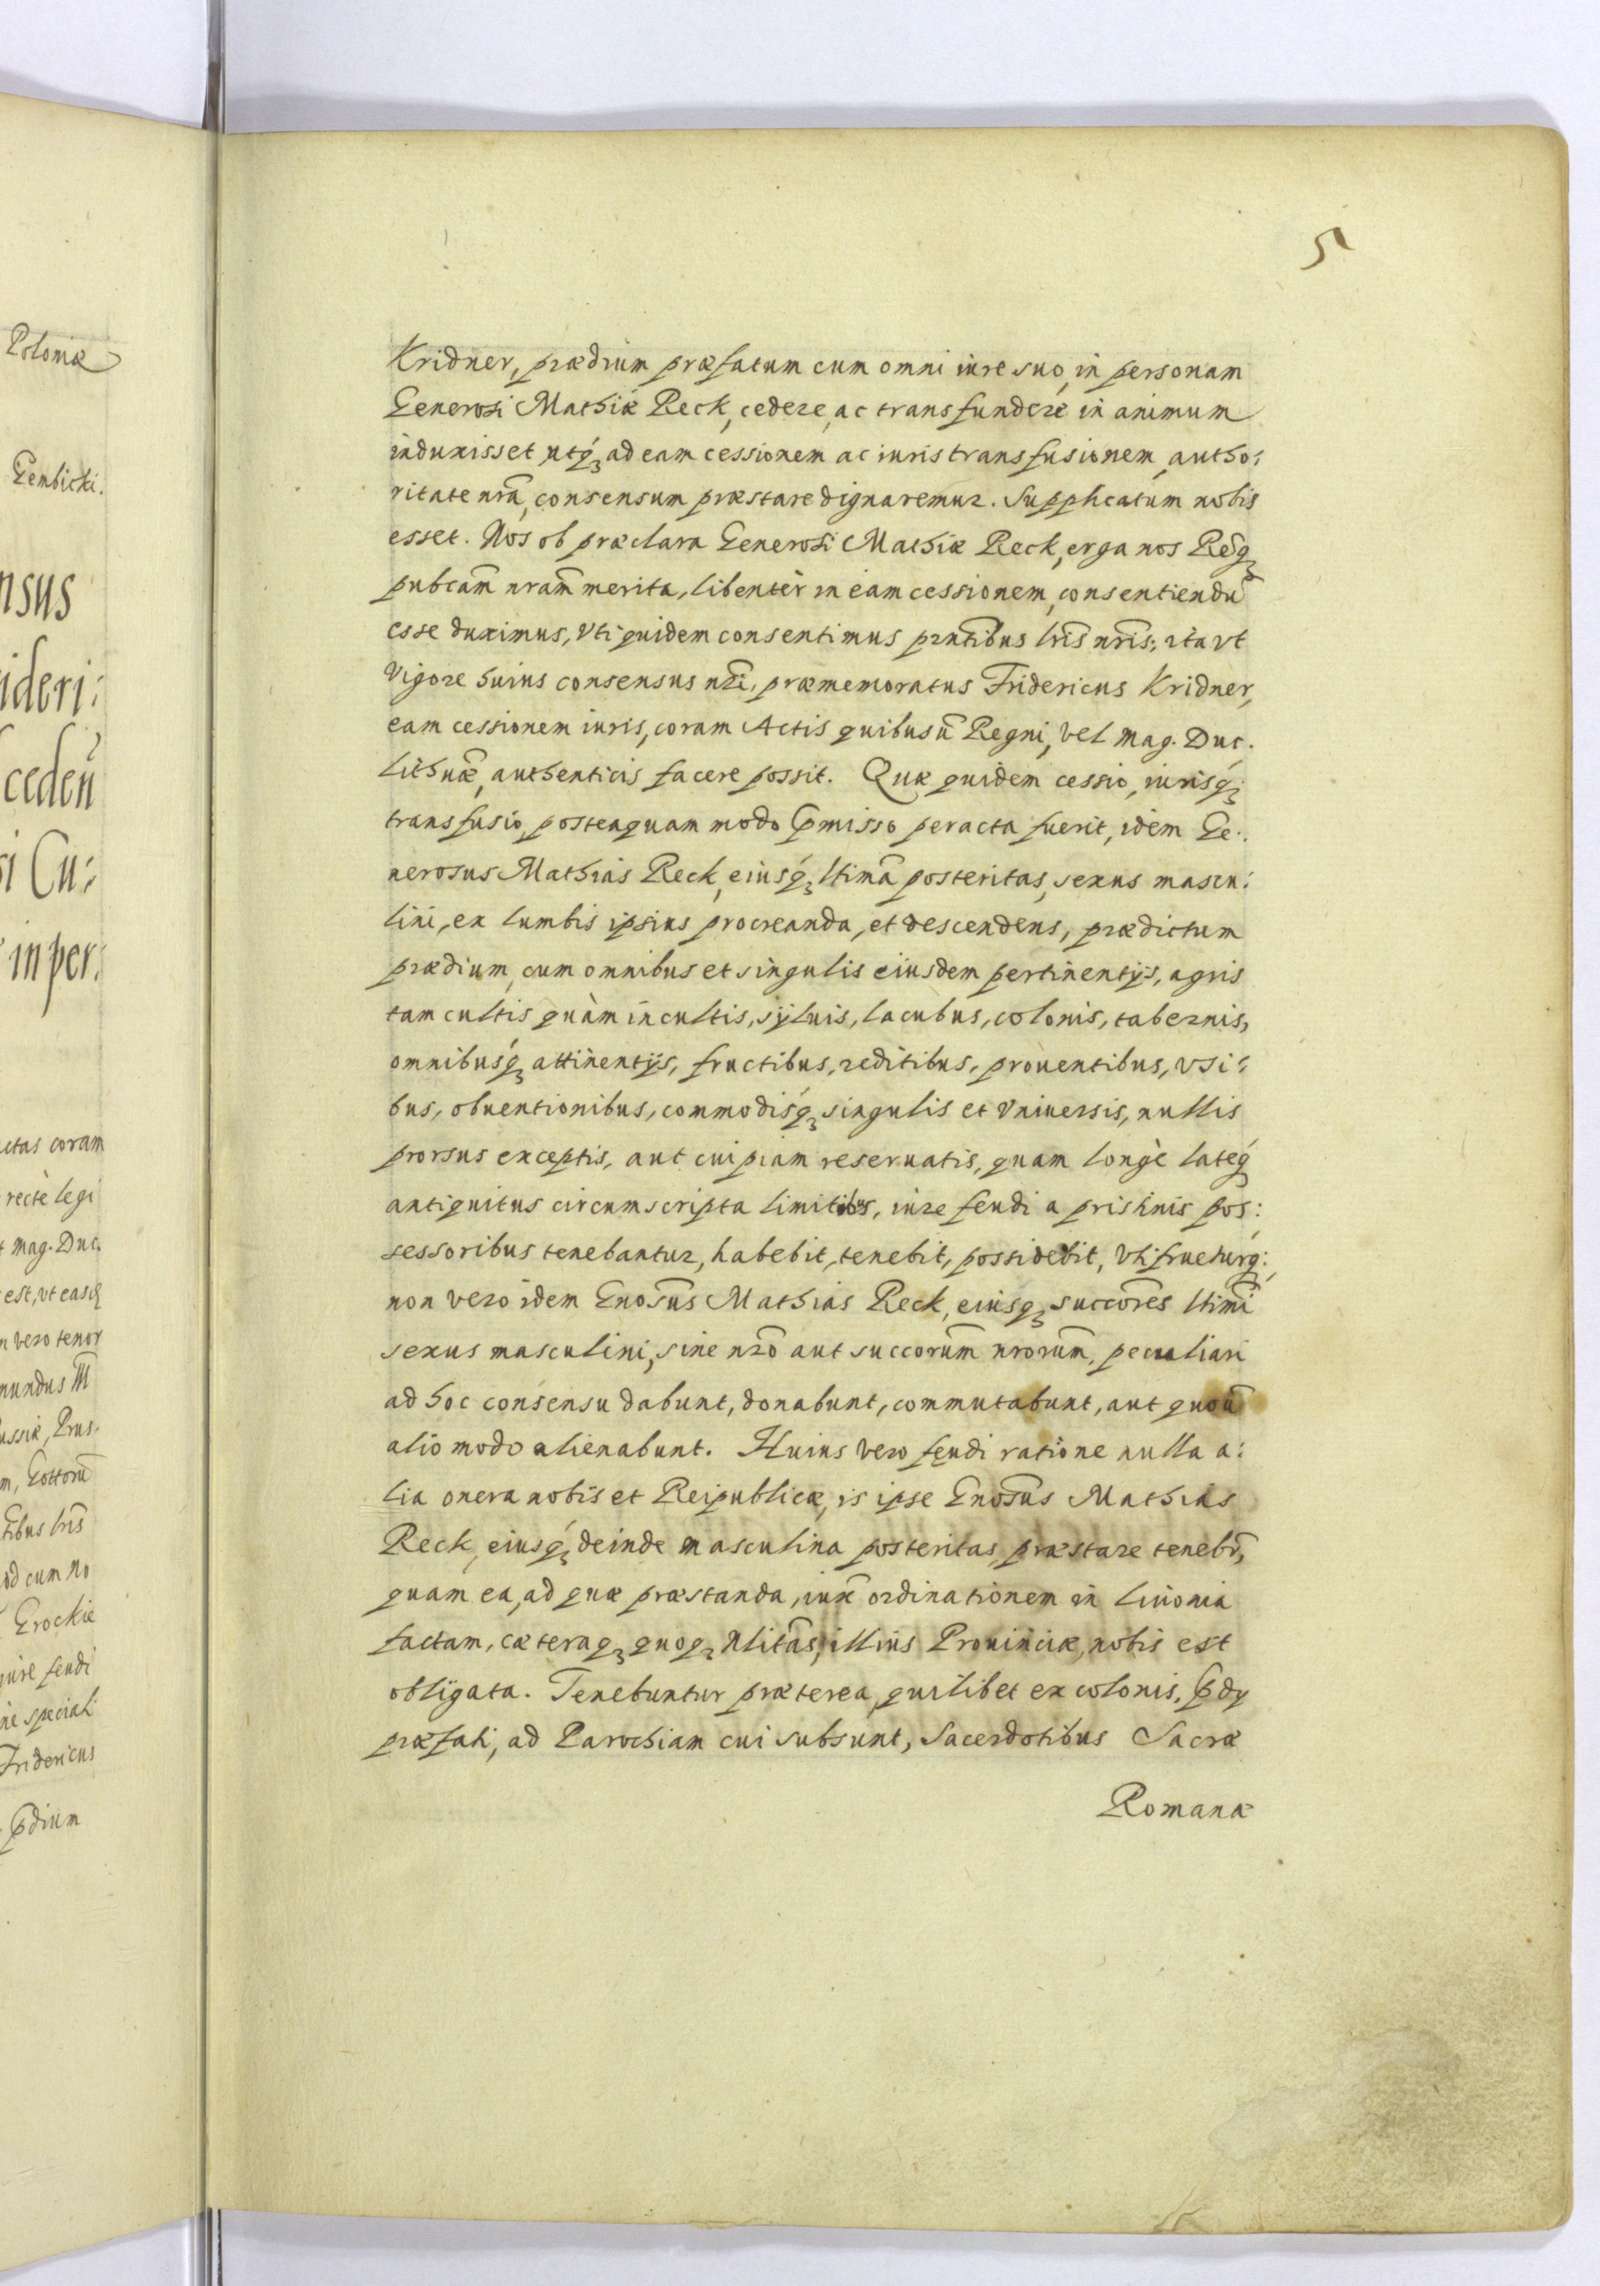 Poloniæ
Gembicki.
nsus
ideri:
ceden
si Cu:
in per:
actas coram
recte legi
t mag. Duc.
est, vt easq
n vero tenor
mundus III
ussiæ, Prus.
m, Gottorū
tibus lrīs
od cum no
Grockie
iure feudi
ne speciali
Fridericus
p̄dium
51
Kridner, prædium præfatum cum omni iure suo, in personam
Generosi Mathiæ Reck, cedere, ac transfundere in animum
induxisset utq₃ ad eam cessionem ac iuris transfusionem, autho:
ritate nrā, consensum præstare dignaremur. Supplicatum nobis
esset. Nos ob præclara Generosi Mathiæ Reck, erga nos Reōq₃
pubcam̄ nram̄ merita, libenter in eam cessionem, consentiendū
esse duximus, Vti quidem consentimus prntībus lrīs nrīs; ita vt
Vigore huius consensus nrī, præmemoratus Fridericus Kridner,
eam cessionem iuris, coram Actis quibusū Regni, vel Mag. Duc.
Lithuǣ, authenticis facere possit. Quæ quidem cessio, iurisq₃
transfusio, posteaquam modo p̄misso peracta fuerit, idem Ge:
nerosus Mathias Reck, eiusq₃ ltimā posteritas, sexus mascu:
lini, ex lumbis ipsius procreanda, et descendens, prædictum
prædium, cum omnibus et singulis eiusdem pertinentijs, agris
tam cultis quàm incultis, syluis, lacubus, colonis, tabernis,
omnibusq₃ attinentijs, fructibus, reditibus, prouentibus, vsi:
bus, obuentionibus, commodisq₃ singulis et vniuersis, nullis
prorsus exceptis, aut cuipiam reseruatis, quam longè lateq
antiquitus circumscripta limitibus, iure feudi a pristinis pos:
sessoribus tenebantur, habebit, tenebit, possidebit, vtifrueturq:
non vero idem Gnosūs Mathias Reck, eiusq₃ succorēs ltimī
sexus masculini, sine nrō aut succorum̄ nrorum̄, peculiari
ad hoc consensu dabunt, donabunt, commutabunt, aut quoū
alio modo alienabunt. Huius vero feudi ratione nulla a:
lia onera nobis et Reipublicæ, is ipse Gnosūs Mathias
Reck, eiusq₃ deinde masculina posteritas, præstare tenebr̄,
quam ea, ad quæ præstanda, iux̄ ordinationem in Liuonia
factam, cæteraq₃ quoq₃ Nlitās, illius Prouinciæ, nobis est
obligata. Tenebuntur præterea, quilibet ex colonis, p̄dy
præfati, ad Parochiam cui subsunt, Sacerdotibus Sacræ
Romanæ